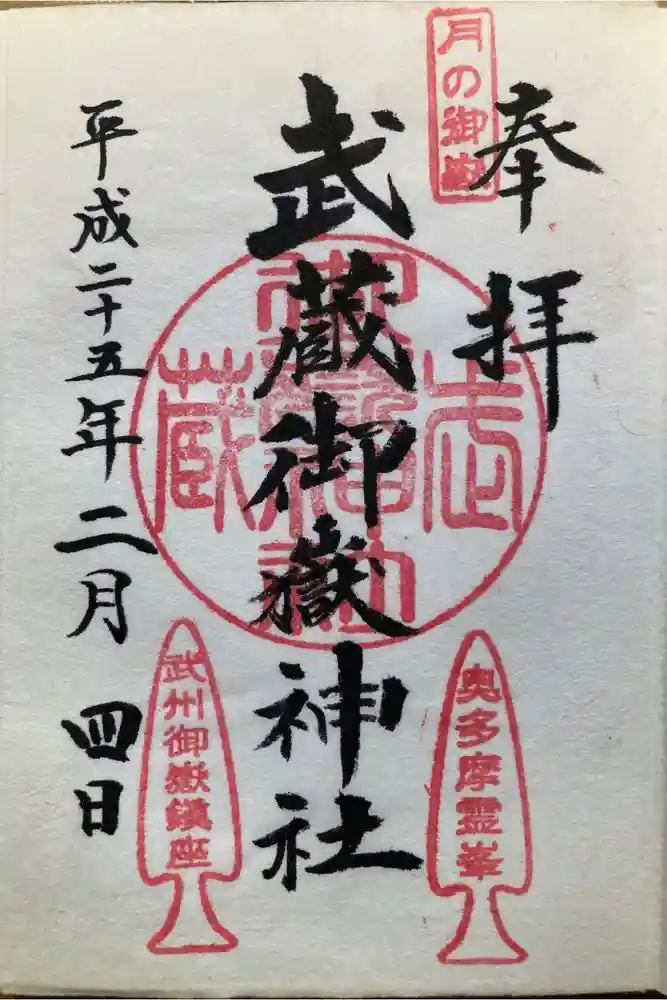 奉拝
月の御嶽
武蔵御嶽神社
奥多摩霊峯
武州御嶽鎮座
平成二十五年二月四日